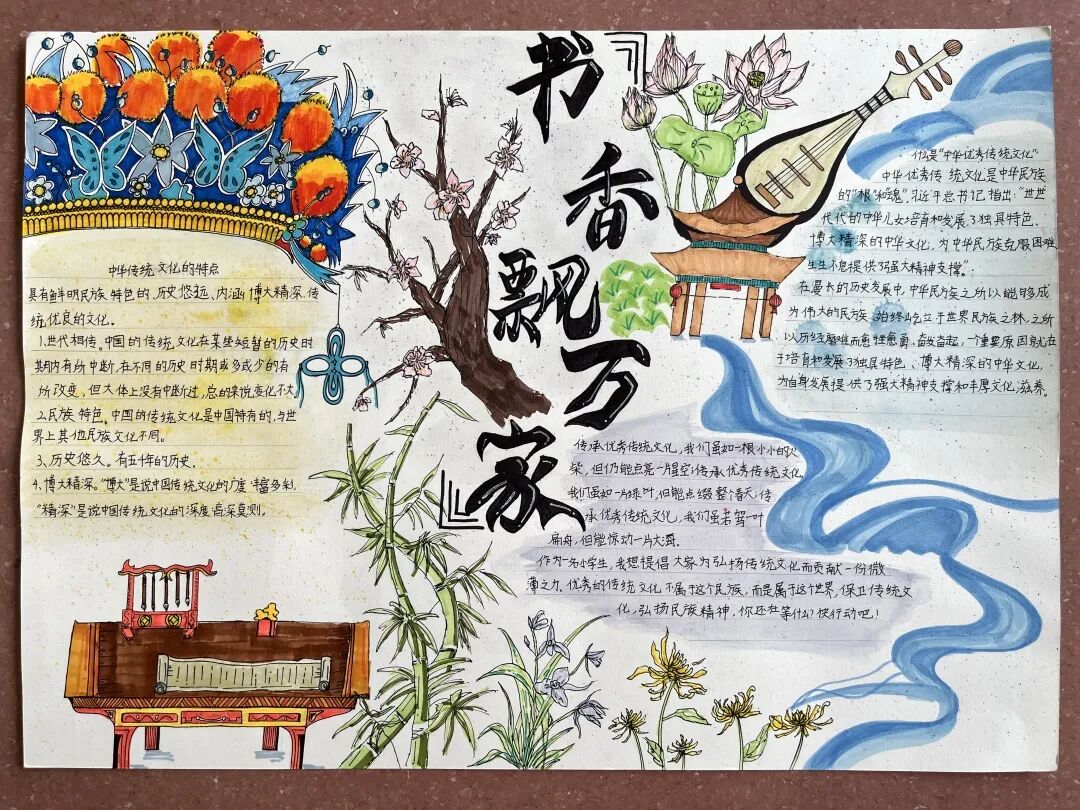 『书香飘万家』
中华传统文化的特点
具有鲜明民族特色的,历史悠远,内涵博大精深,传
统优良的文化。
1.世代相传。中国的传统文化在某些短暂的历史时
期内有所中断,在不同的历史时期或多或少的有
所改变,但大体上没有中断过,总的来说变化不大
2.民族特色。中国的传统文化是中国特有的,与世
界上其他民族文化不同。
3、历史悠久。有五千年的历史.
4、博大精深。“博大”是说中国传统文化的广度丰富多彩,
“精深”是说中国传统文化的深度高深莫测。
什么是“中华优秀传统文化”
中华优秀传统文化是中华民族
的“根”和“魂”,习近平总书记指出:“世世
代代的中华儿女培育和发展了独具特色、
博大精深的中华文化,为中华民族克服困难
生生不息提供了强大精神支撑”。
在漫长的历史发展中,中华民族之所以能够成
为伟大的民族,始终屹立于世界民族之林,之所
以历经磨难而愈挫愈勇、奋发奋起,一个重要原因就在
于培育和发展了独具特色、博大精深的中华文化,
为自身发展提供了强大精神支撑和丰厚文化滋养。
传承优秀传统文化,我们虽如一根小小的火
柴,但仍能点亮一片星空;传承优秀传统文化,
我们虽如一片绿叶,但能点缀整个春天;传
承优秀传统文化,我们虽若驾一叶
扁舟,但能惊动一片大海。
作为一名小学生,我想提倡大家为弘扬传统文化而贡献一份微
薄之力,优秀的传统文化不属于这个民族,而是属于这个世界,保卫传统文
化,弘扬民族精神,你还在等什么?快行动吧!